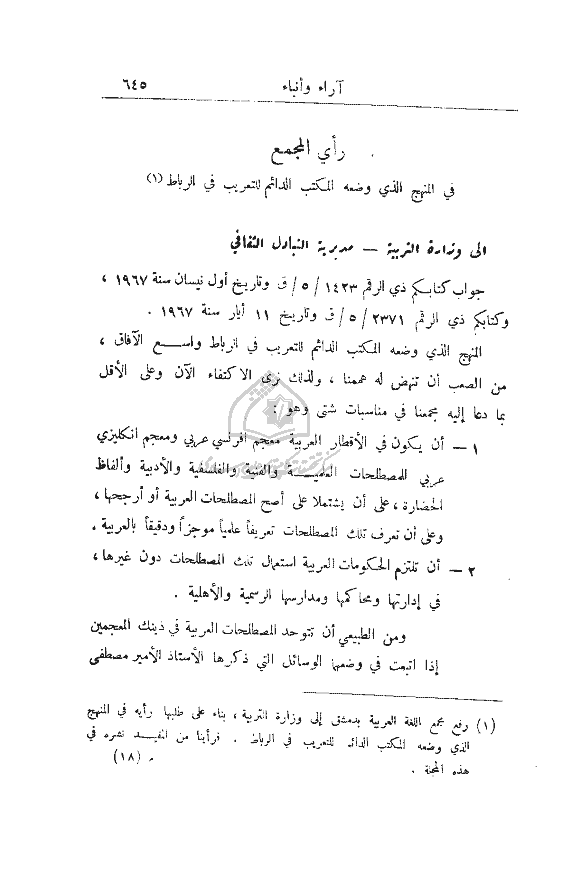 آراء وأنباء ٦٤٥
رأي المجمع
في المنهج الذي وضعه المكتب الدائم للتعريب في الرباط (١)
الى وزارة التربية — مديرية التبادل الثقافي
جواب كتابكم ذي الرقم ١٤٢٣ / ٥ / ق وتاريخ أول نيسان سنة ١٩٦٧ ،
وكتابكم ذي الرقم ٢٣٧١ / ٥ / ق وتاريخ ١١ أيار سنة ١٩٦٧ .
المنهج الذي وضعه المكتب الدائم للتعريب في الرباط واسع الآفاق ،
من الصعب أن تنهض له هممنا ، ولذلك نرى الاكتفاء الآن وعلى الأقل
بما دعا إليه مجمعنا في مناسبات شتى وهو :
١ — أن يكون في الأقطار العربية معجم افرنسي عربي ومعجم انكليزي
عربي للمصطلحات العلمية والفنية والفلسفية والأدبية وألفاظ
الحضارة ، على أن يشتملا على أصح المصطلحات العربية أو أرجحها ،
وعلى أن تعرف تلك المصطلحات تعريفاً علمياً موجزاً ودقيقاً بالعربية .
٢ — أن تلتزم الحكومات العربية استعمال تلك المصطلحات دون غيرها ،
في إدارتها ومحاكمها ومدارسها الرسمية والأهلية .
ومن الطبيعي أن تتوحد المصطلحات العربية في ذينك المعجمين
إذا اتبعت في وضعها الوسائل التي ذكرها الأستاذ الأمير مصطفى
(١) رفع مجمع اللغة العربية بدمشق إلى وزارة التربية ، بناء على طلبها رأيه في المنهج
الذي وضعه المكتب الدائم للتعريب في الرباط . فرأينا من المفيد نشره في
هذه المجلة .
م (١٨)